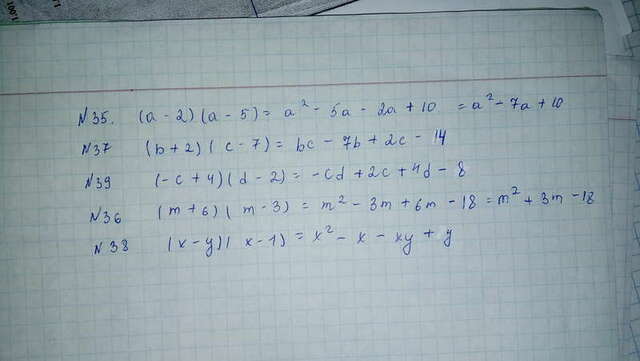 N35. (a - 2)(a - 5) = a² - 5a - 2a + 10 = a² - 7a + 10
N37 (b + 2)(c - 7) = bc - 7b + 2c - 14
N39 (-c + 4)(d - 2) = -cd + 2c + 4d - 8
N36 (m + 6)(m - 3) = m² - 3m + 6m - 18 = m² + 3m - 18
N38 (x - y)(x - 1) = x² - x - xy + y
1.001